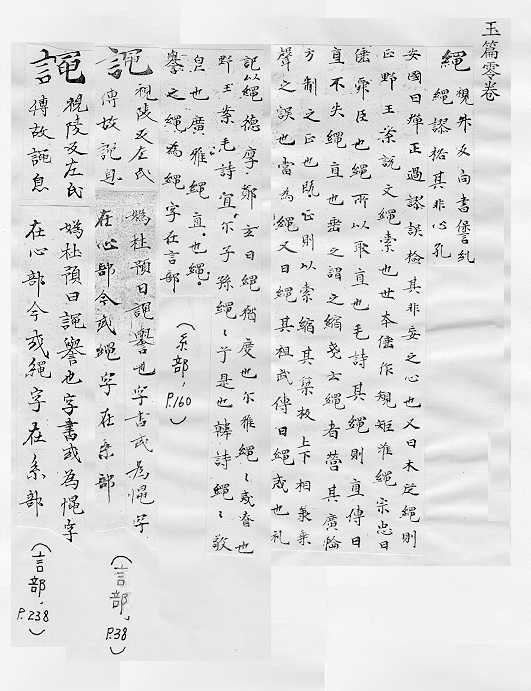 玉篇零卷
繩
視升反尚書僣糺
繩謬格其非心孔
安國曰彈正過謬誤檢其非妄之心也又曰木從繩則
正野王案說文繩索也世本倕作規矩准繩宗忠曰
倕舜臣也繩所以取直也毛詩其繩則直傳曰
直不失繩直也之謂之縮云繩者營其廣輪
方制之正也既正則以索縮其築板上下相兼乘
聲之誤也當為繩又曰繩其祖武傳曰繩戒也礼
記以繩德厚鄭玄曰繩猶度也尔雅繩〻戒眘也
野王案毛詩宜尔子孫繩〻兮是也韓詩繩〻敬
皃也廣雅繩直也繩
譽之繩為繩字在言部
(糸部, P.160)
譝
視陵反左氏
傳故譝息
媯杜預曰譝譽也字書或為憴字
在心部今或繩字在糸部
(言部, P.38)
譝
視陵反左氏
傳故譝息
媯杜預曰譝譽也字書或為憴字
在心部今或繩字在糸部
(言部, P.238)